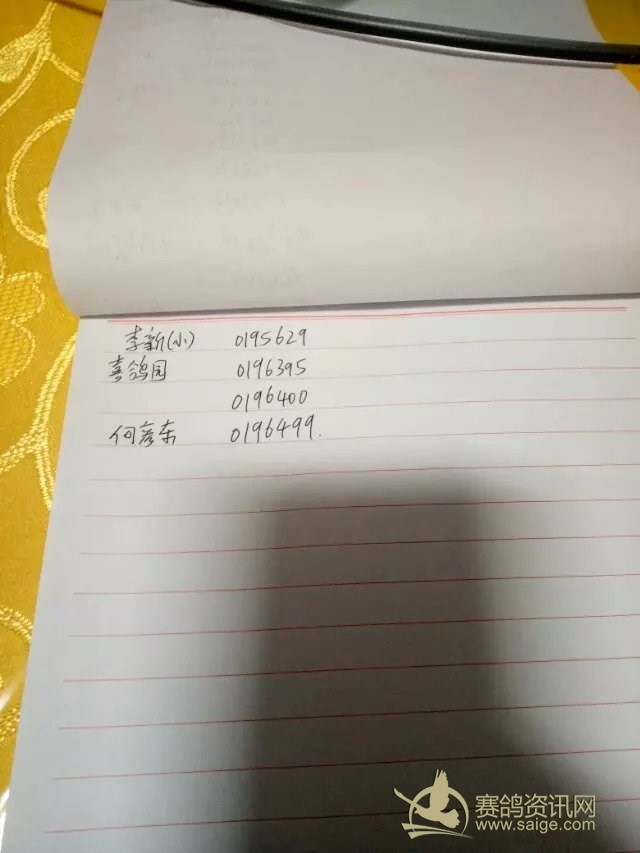 李新(小) 0195629
喜鸽园 0196395
0196400
何彦东 0196499.
赛鸽资讯网
www.saige.com